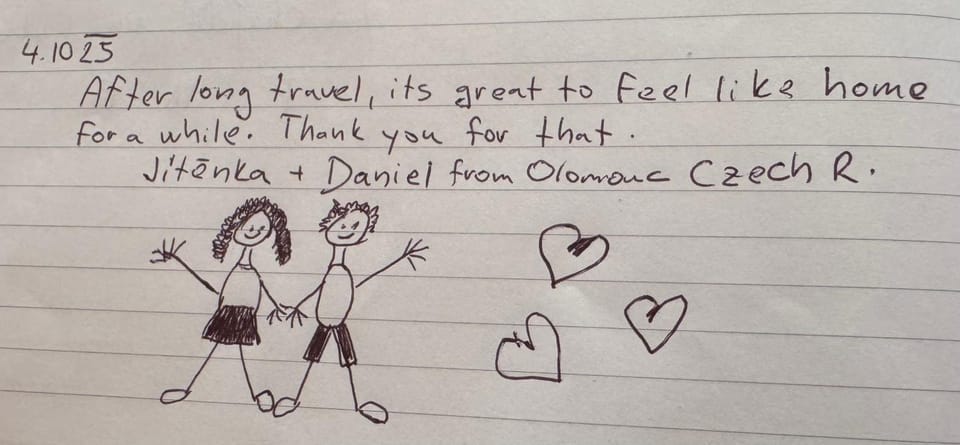 4.10 25
After long travel, its great to feel like home
for a while. Thank you for that.
Jitěnka + Daniel from Olomouc Czech R.